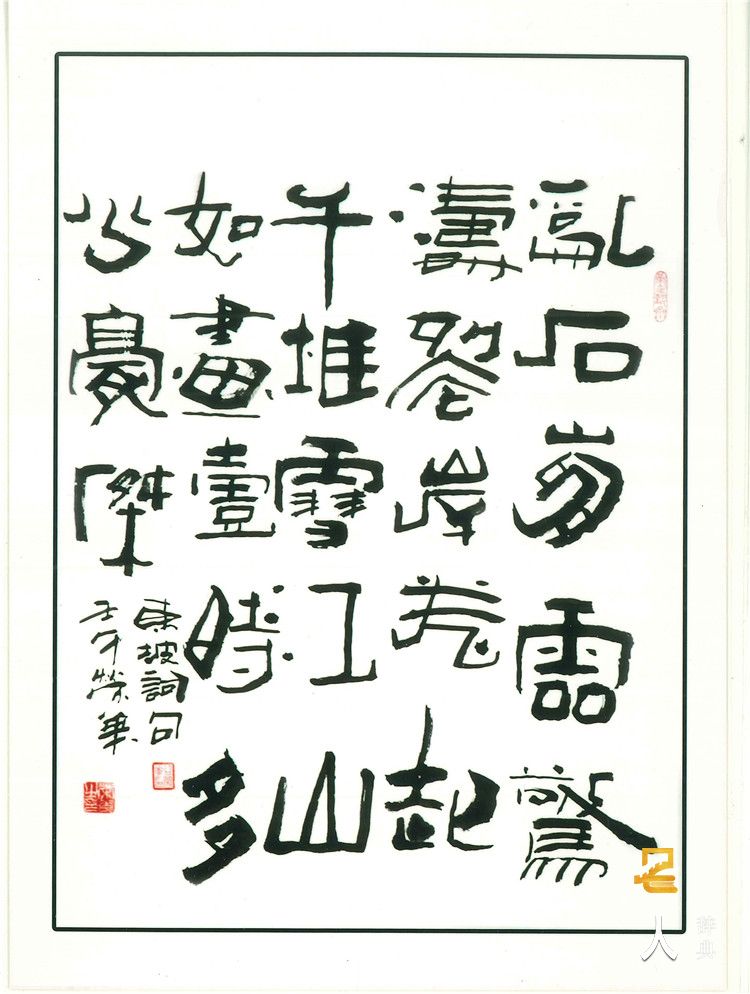 亂石崩雲驚
濤裂岸卷起
千堆雪江山
如畫壹時多
少豪傑
東坡詞句
壬午榮華
名人
辞典